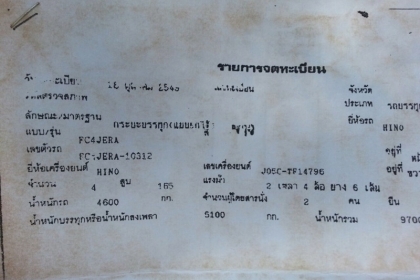 รายการจดทะเบียน
2540 จังหวัด
ประเภท รถบรรทุก
ลักษณะ/มาตรฐาน กระบะบรรทุก ยี่ห้อรถ HINO
แบบ/รุ่น FC4JERA สี ขาว
เลขตัวรถ FC4JERA-10312 อยู่ที่
ยี่ห้อเครื่องยนต์ HINO เลขเครื่องยนต์ J05C-TF14796 อยู่ที่
จำนวน 4 สูบ 165 แรงม้า 2 เพลา 4 ล้อ ยาง 6 เส้น
น้ำหนักรถ 4600 กก. จำนวนผู้โดยสารนั่ง 2 คน ยืน
น้ำหนักบรรทุกหรือน้ำหนักลงเพลา 5100 กก. น้ำหนักรวม 9700